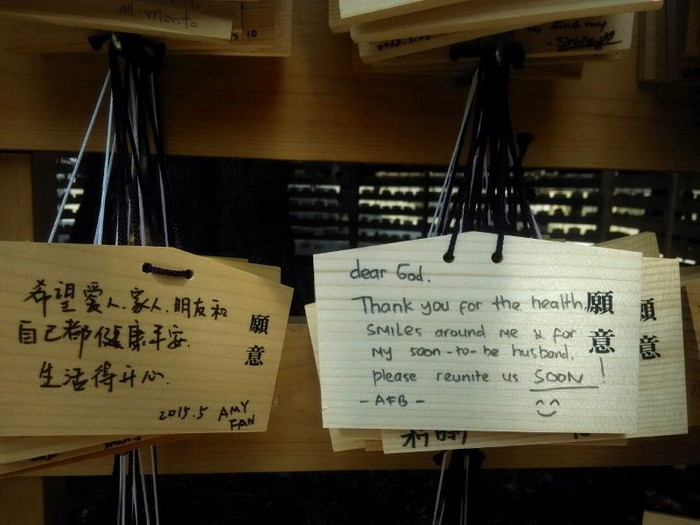 希望爱人.家人.朋友和
自己都健康平安.
生活得开心.
2015.5 AMY
FAN
願意
dear God.
Thank you for the health,
SMILES around me & for
my soon-to-be husband,
please reunite us SOON!
- AFB -
願意
願意
find my
5 10